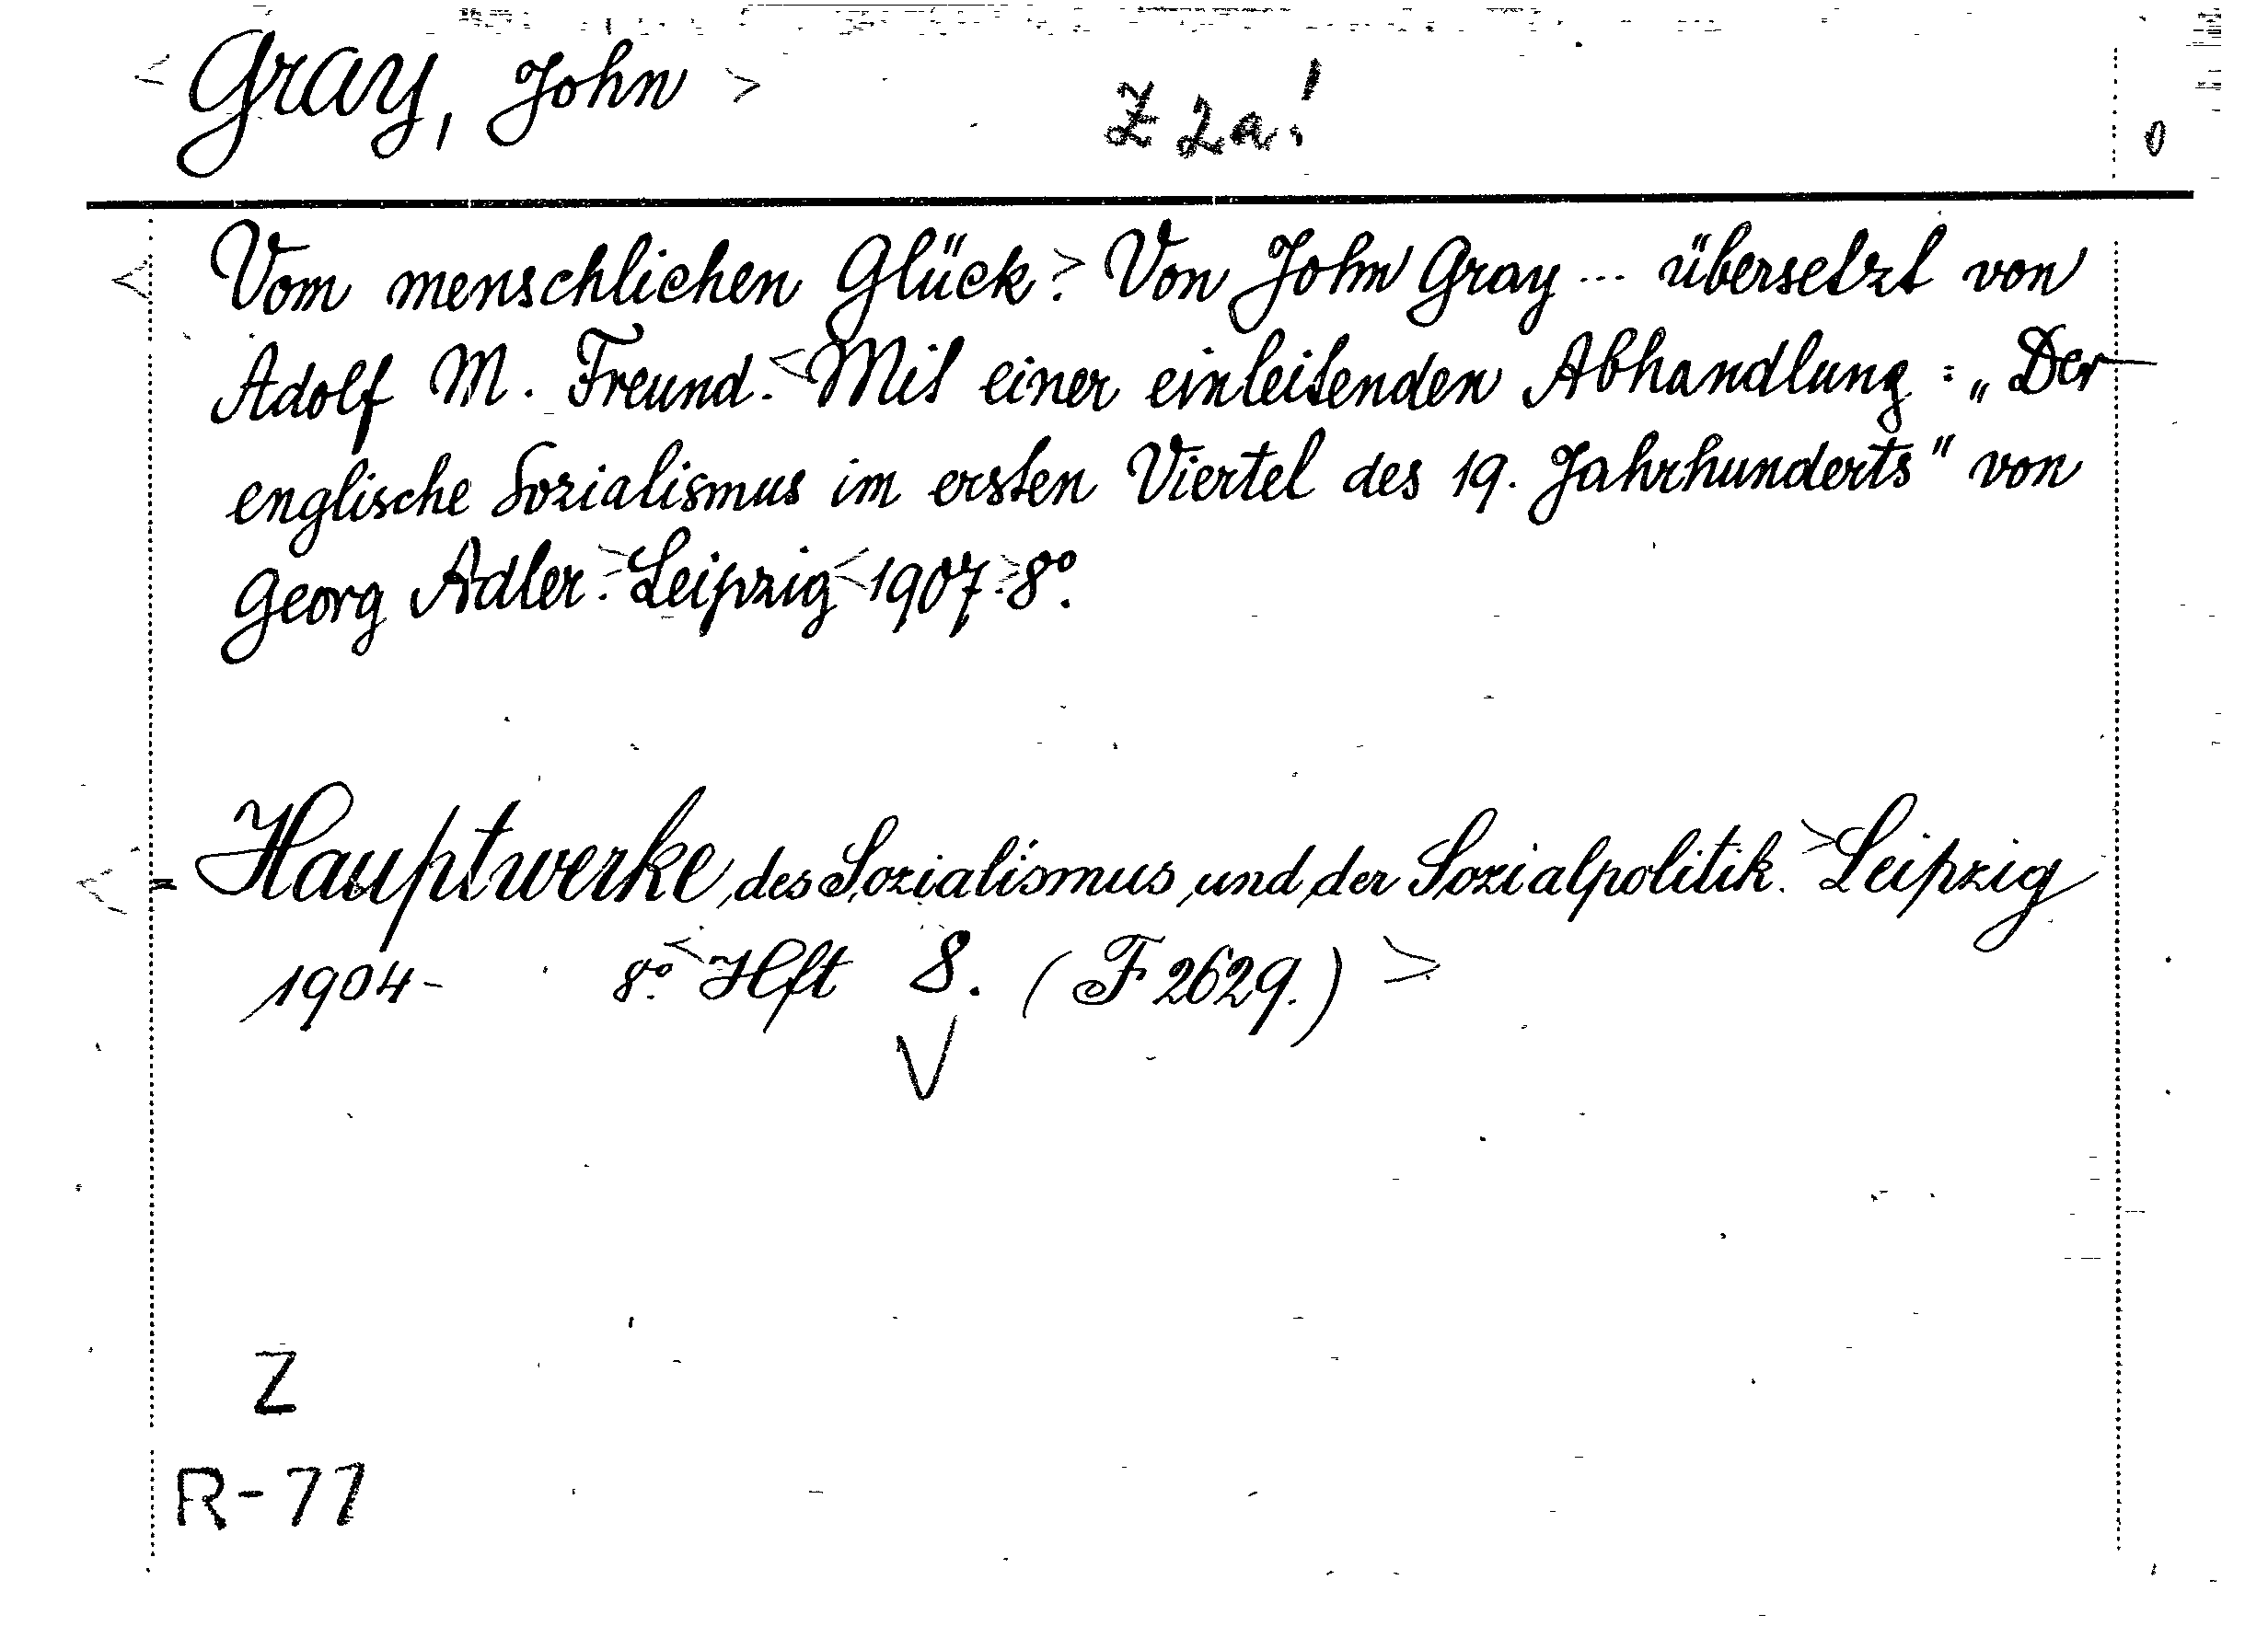 < Gray, John > Z 2a! 0
< Vom menschlichen Glück. > Von John Gray ... übersetzt von
Adolf M. Freund. < Mit einer einleitenden Abhandlung : „Der
englische Sozialismus im ersten Viertel des 19. Jahrhunderts" von
Georg Adler. > Leipzig < 1907. > 8°.
< = Hauptwerke des Sozialismus und der Sozialpolitik. > Leipzig
1904- 8°. < Hft 8. (F 2629.) >
V
Z
R-77